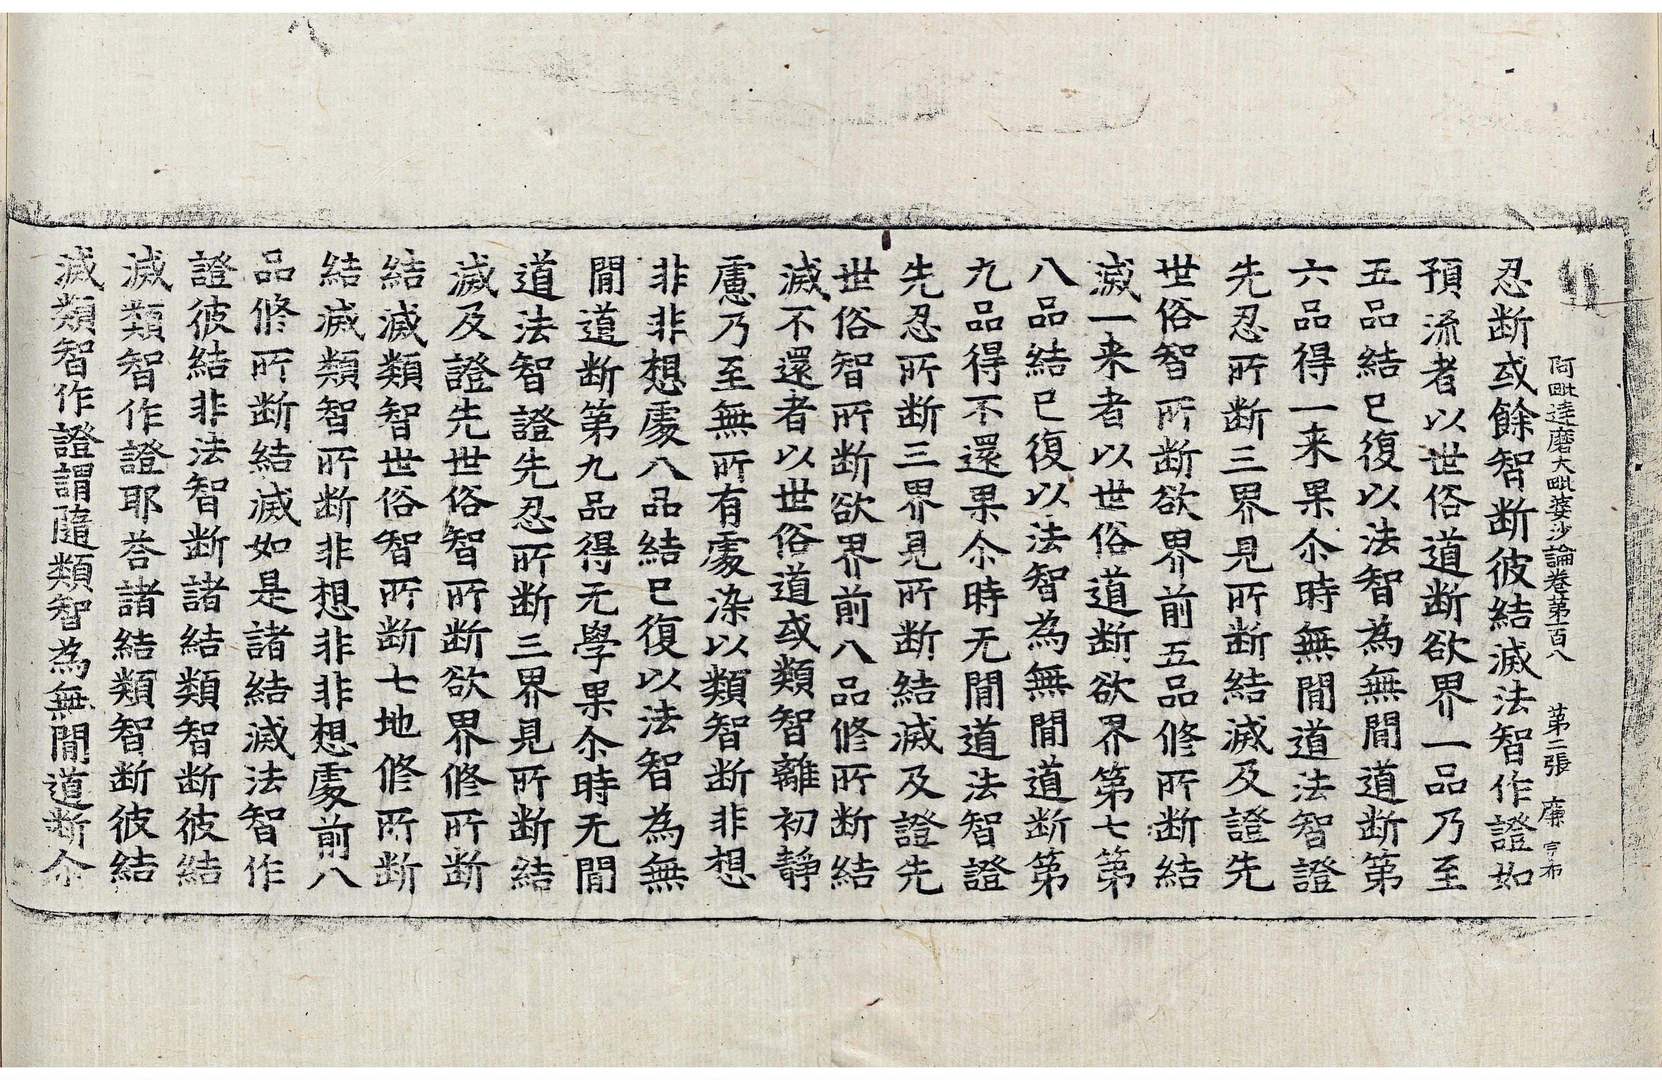 阿毗達磨大毗婆沙論卷苐一百八 苐二張 廉 布
忍断或餘智断彼結滅法智作證如
預流者以世俗道断欲界一品乃至
五品結已復以法智為無閒道断第
六品得一来果尒時無閒道法智證
先忍所断三界見所断結滅及證先
世俗智所断欲界前五品修所断結
滅一来者以世俗道断欲界第七第
八品結已復以法智為無閒道断第
九品得不還果尒時无閒道法智證
先忍所断三界見所断結滅及證先
世俗智所断欲界前八品修所断結
滅不還者以世俗道或類智離初靜
慮乃至無所有處染以類智断非想
非非想處八品結已復以法智為無
閒道断第九品得无學果尒時无閒
道法智證先忍所断三界見所断結
滅及證先世俗智所断欲界修所断
結滅類智世俗智所断七地修所断
結滅類智所断非想非非想處前八
品修所断結滅如是諸結滅法智作
證彼結非法智断諸結類智断彼結
滅類智作證耶荅諸結類智断彼結
滅類智作證謂隨類智為無閒道断尒